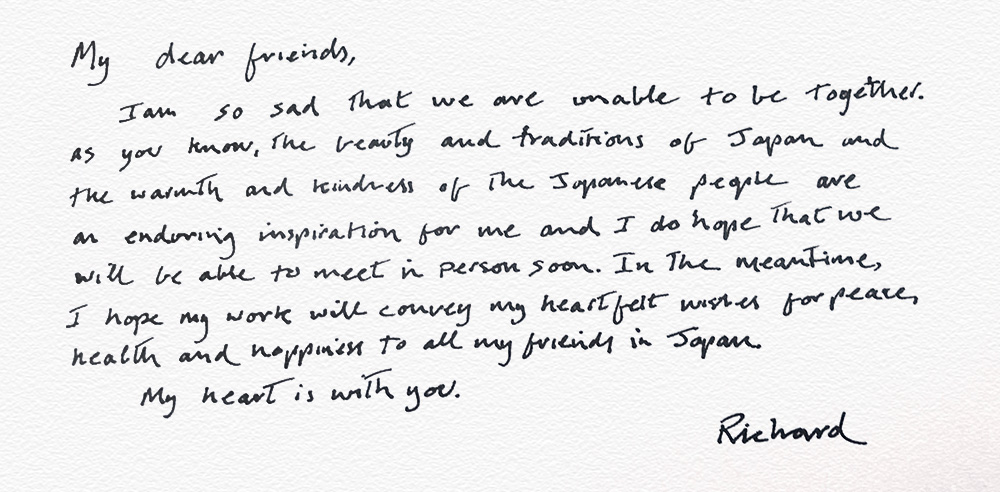 My dear friends,
I am so sad that we are unable to be together.
as you know, the beauty and traditions of Japan and
the warmth and kindness of the Japanese people are
an enduring inspiration for me and I do hope that we
will be able to meet in person soon. In the meantime,
I hope my work will convey my heartfelt wishes for peace,
health and happiness to all my friends in Japan.
My heart is with you.
Richard